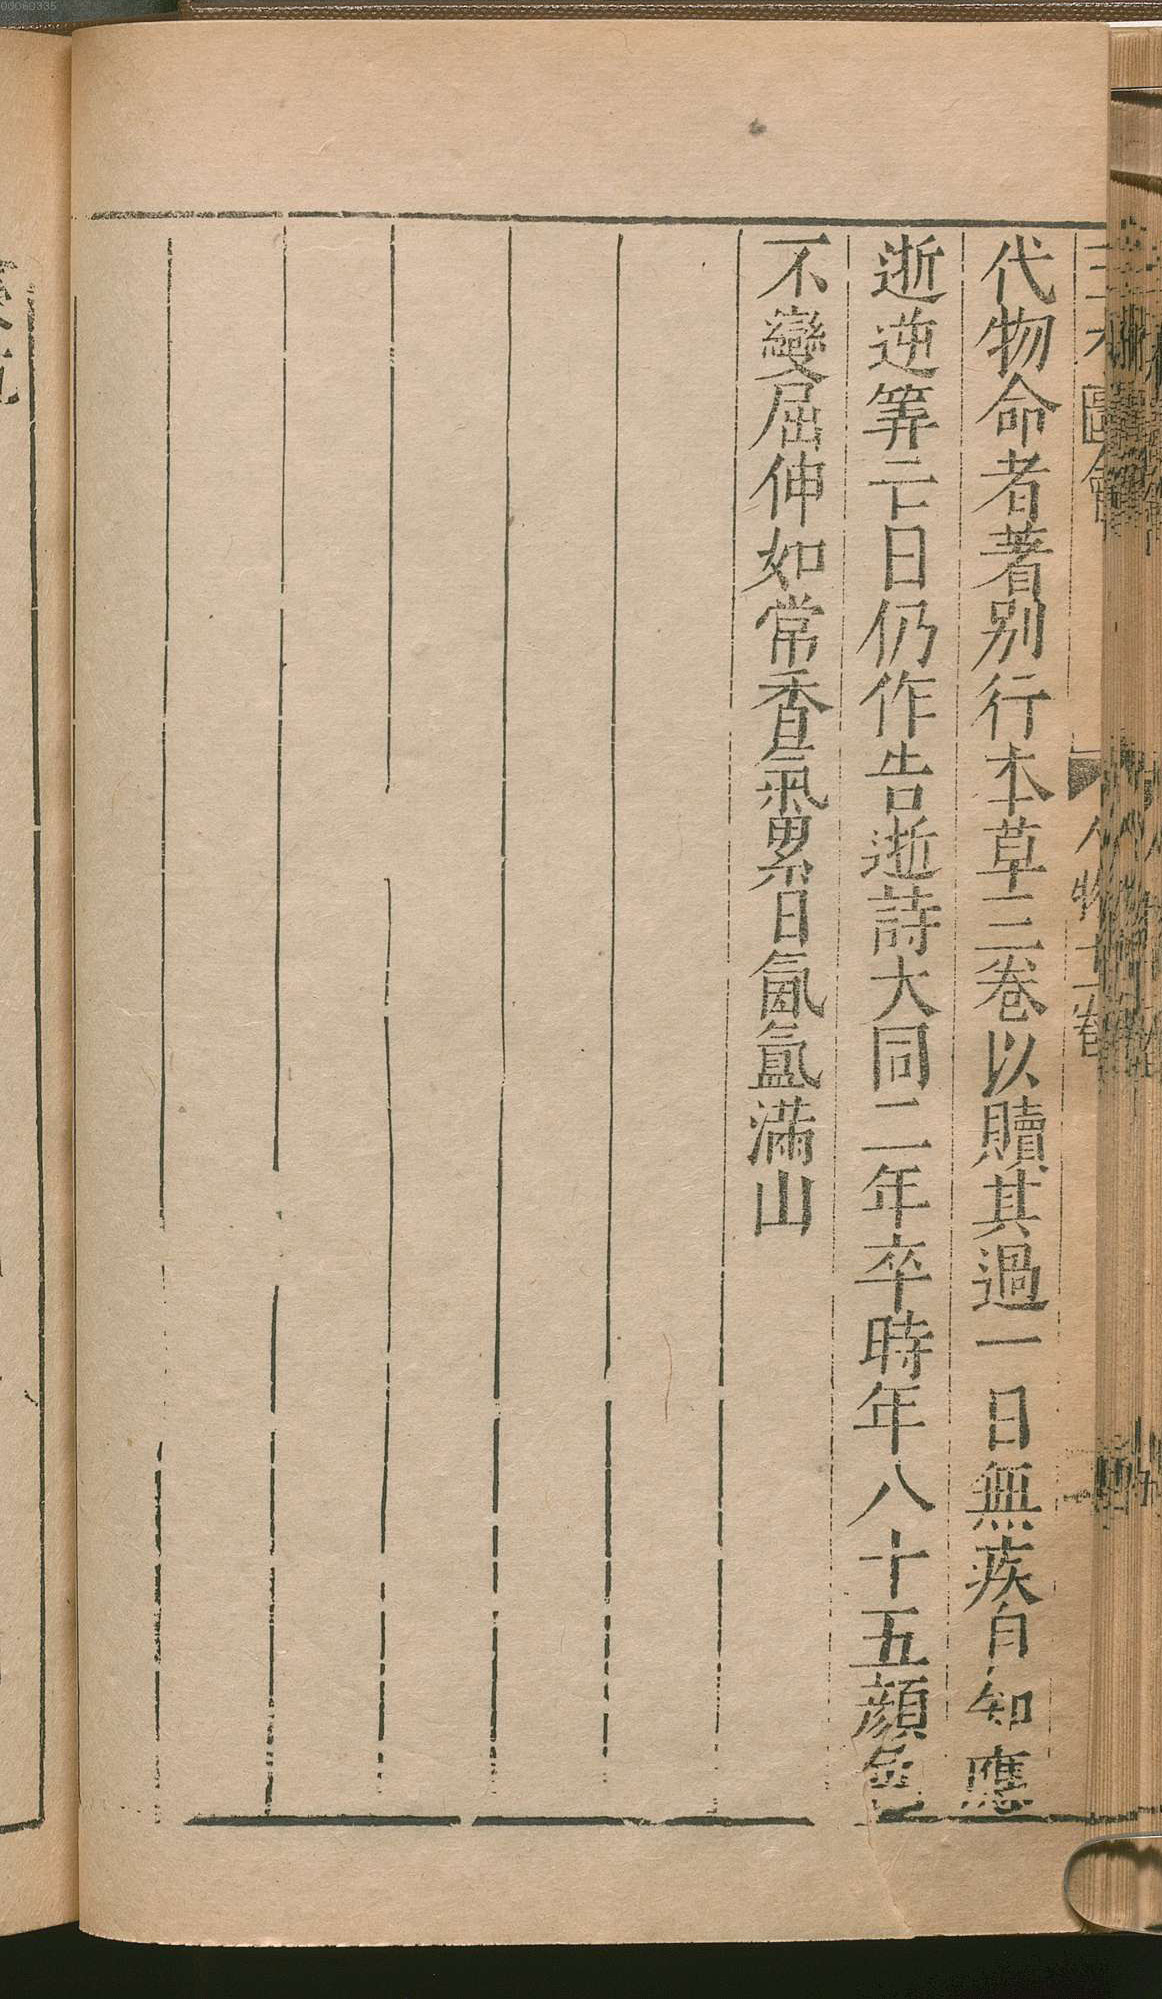 00060335
三才圖會 人物十一卷
代物命者著別行本草三卷以贖其過一日無疾自知應
逝逆筭亡日仍作告逝詩大同二年卒時年八十五顏色
不變屈伸如常香氣累日氤氳滿山